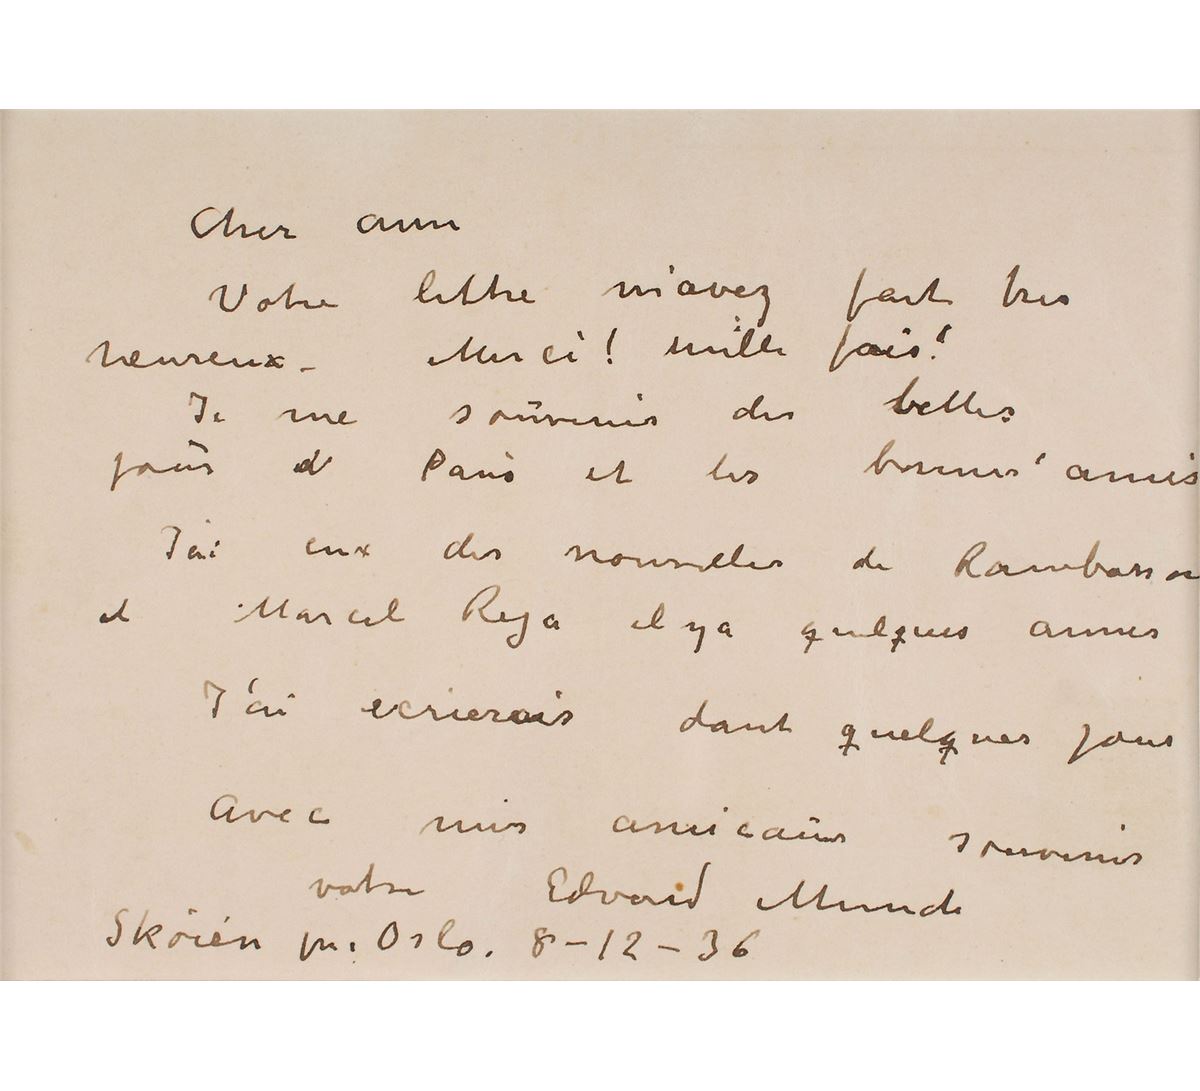 Cher ami
Votre lettre m'avez fait tres
heureux - Merci! mille fois!
Je me souvenis des belles
jours d Paris et les bonnes amis
J'ai eux des nouvelles de Rambosson
et Marcel Reja il ya quelques annes
J'ai ecrierais dant quelques jours
Avec mis amicaus souvenis
votre Edvard Munch
Skøien pr. Oslo. 8-12-36